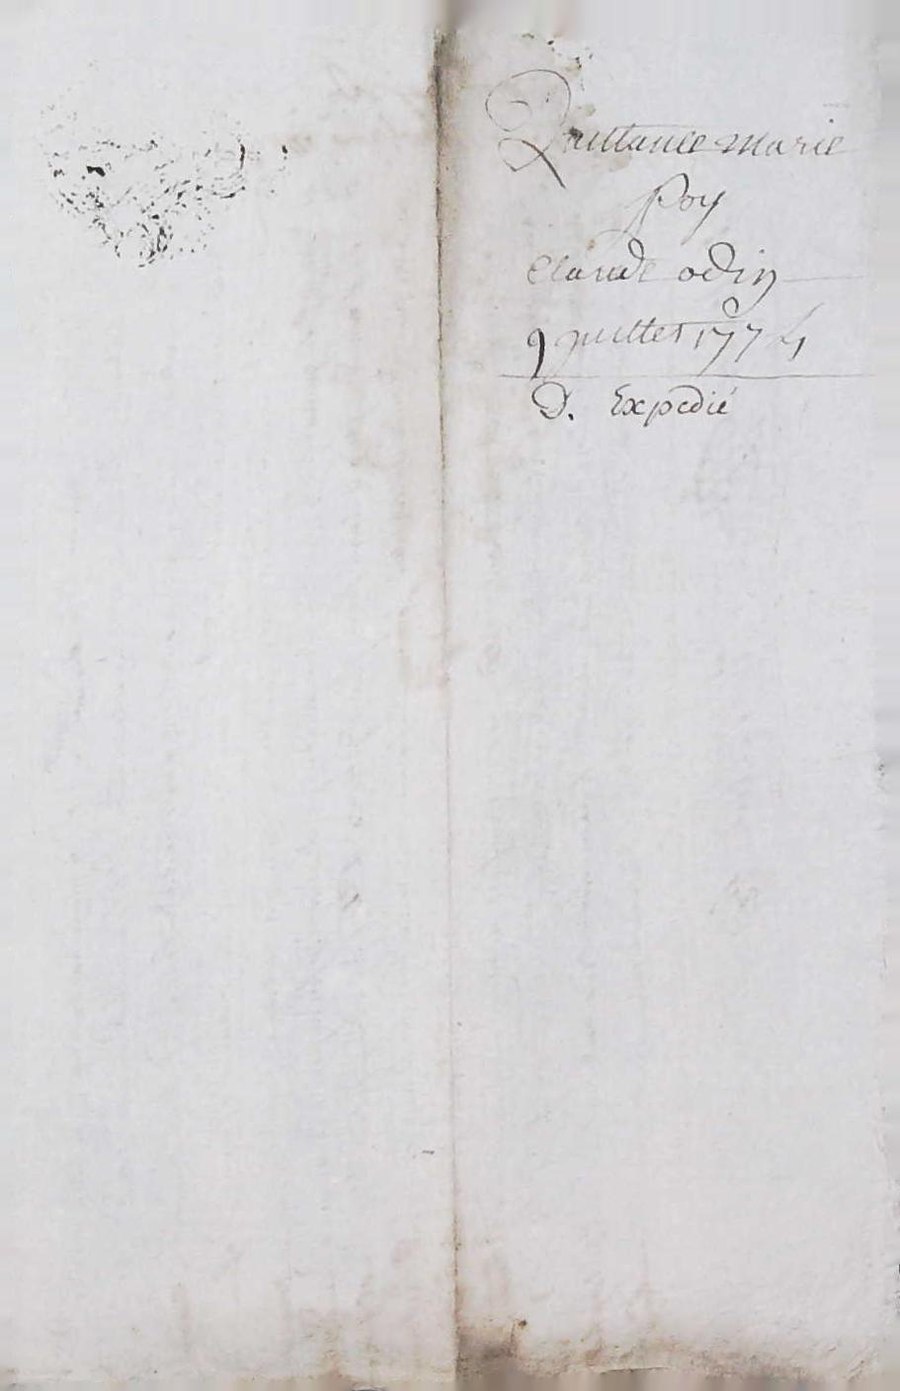 Quittance Marie
Poy
Claude odin
9 juillet 1774
D. Expedié